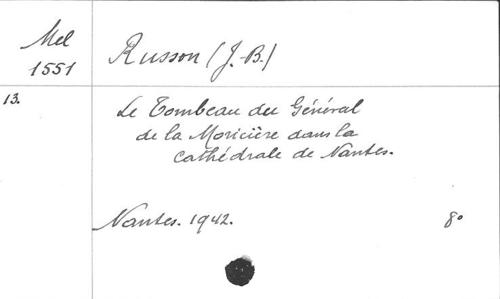 Mel
1551
Russon (J.-B.)
13.
Le Tombeau du Général
de la Moricière dans la
Cathédrale de Nantes.
Nantes. 1942.
8o